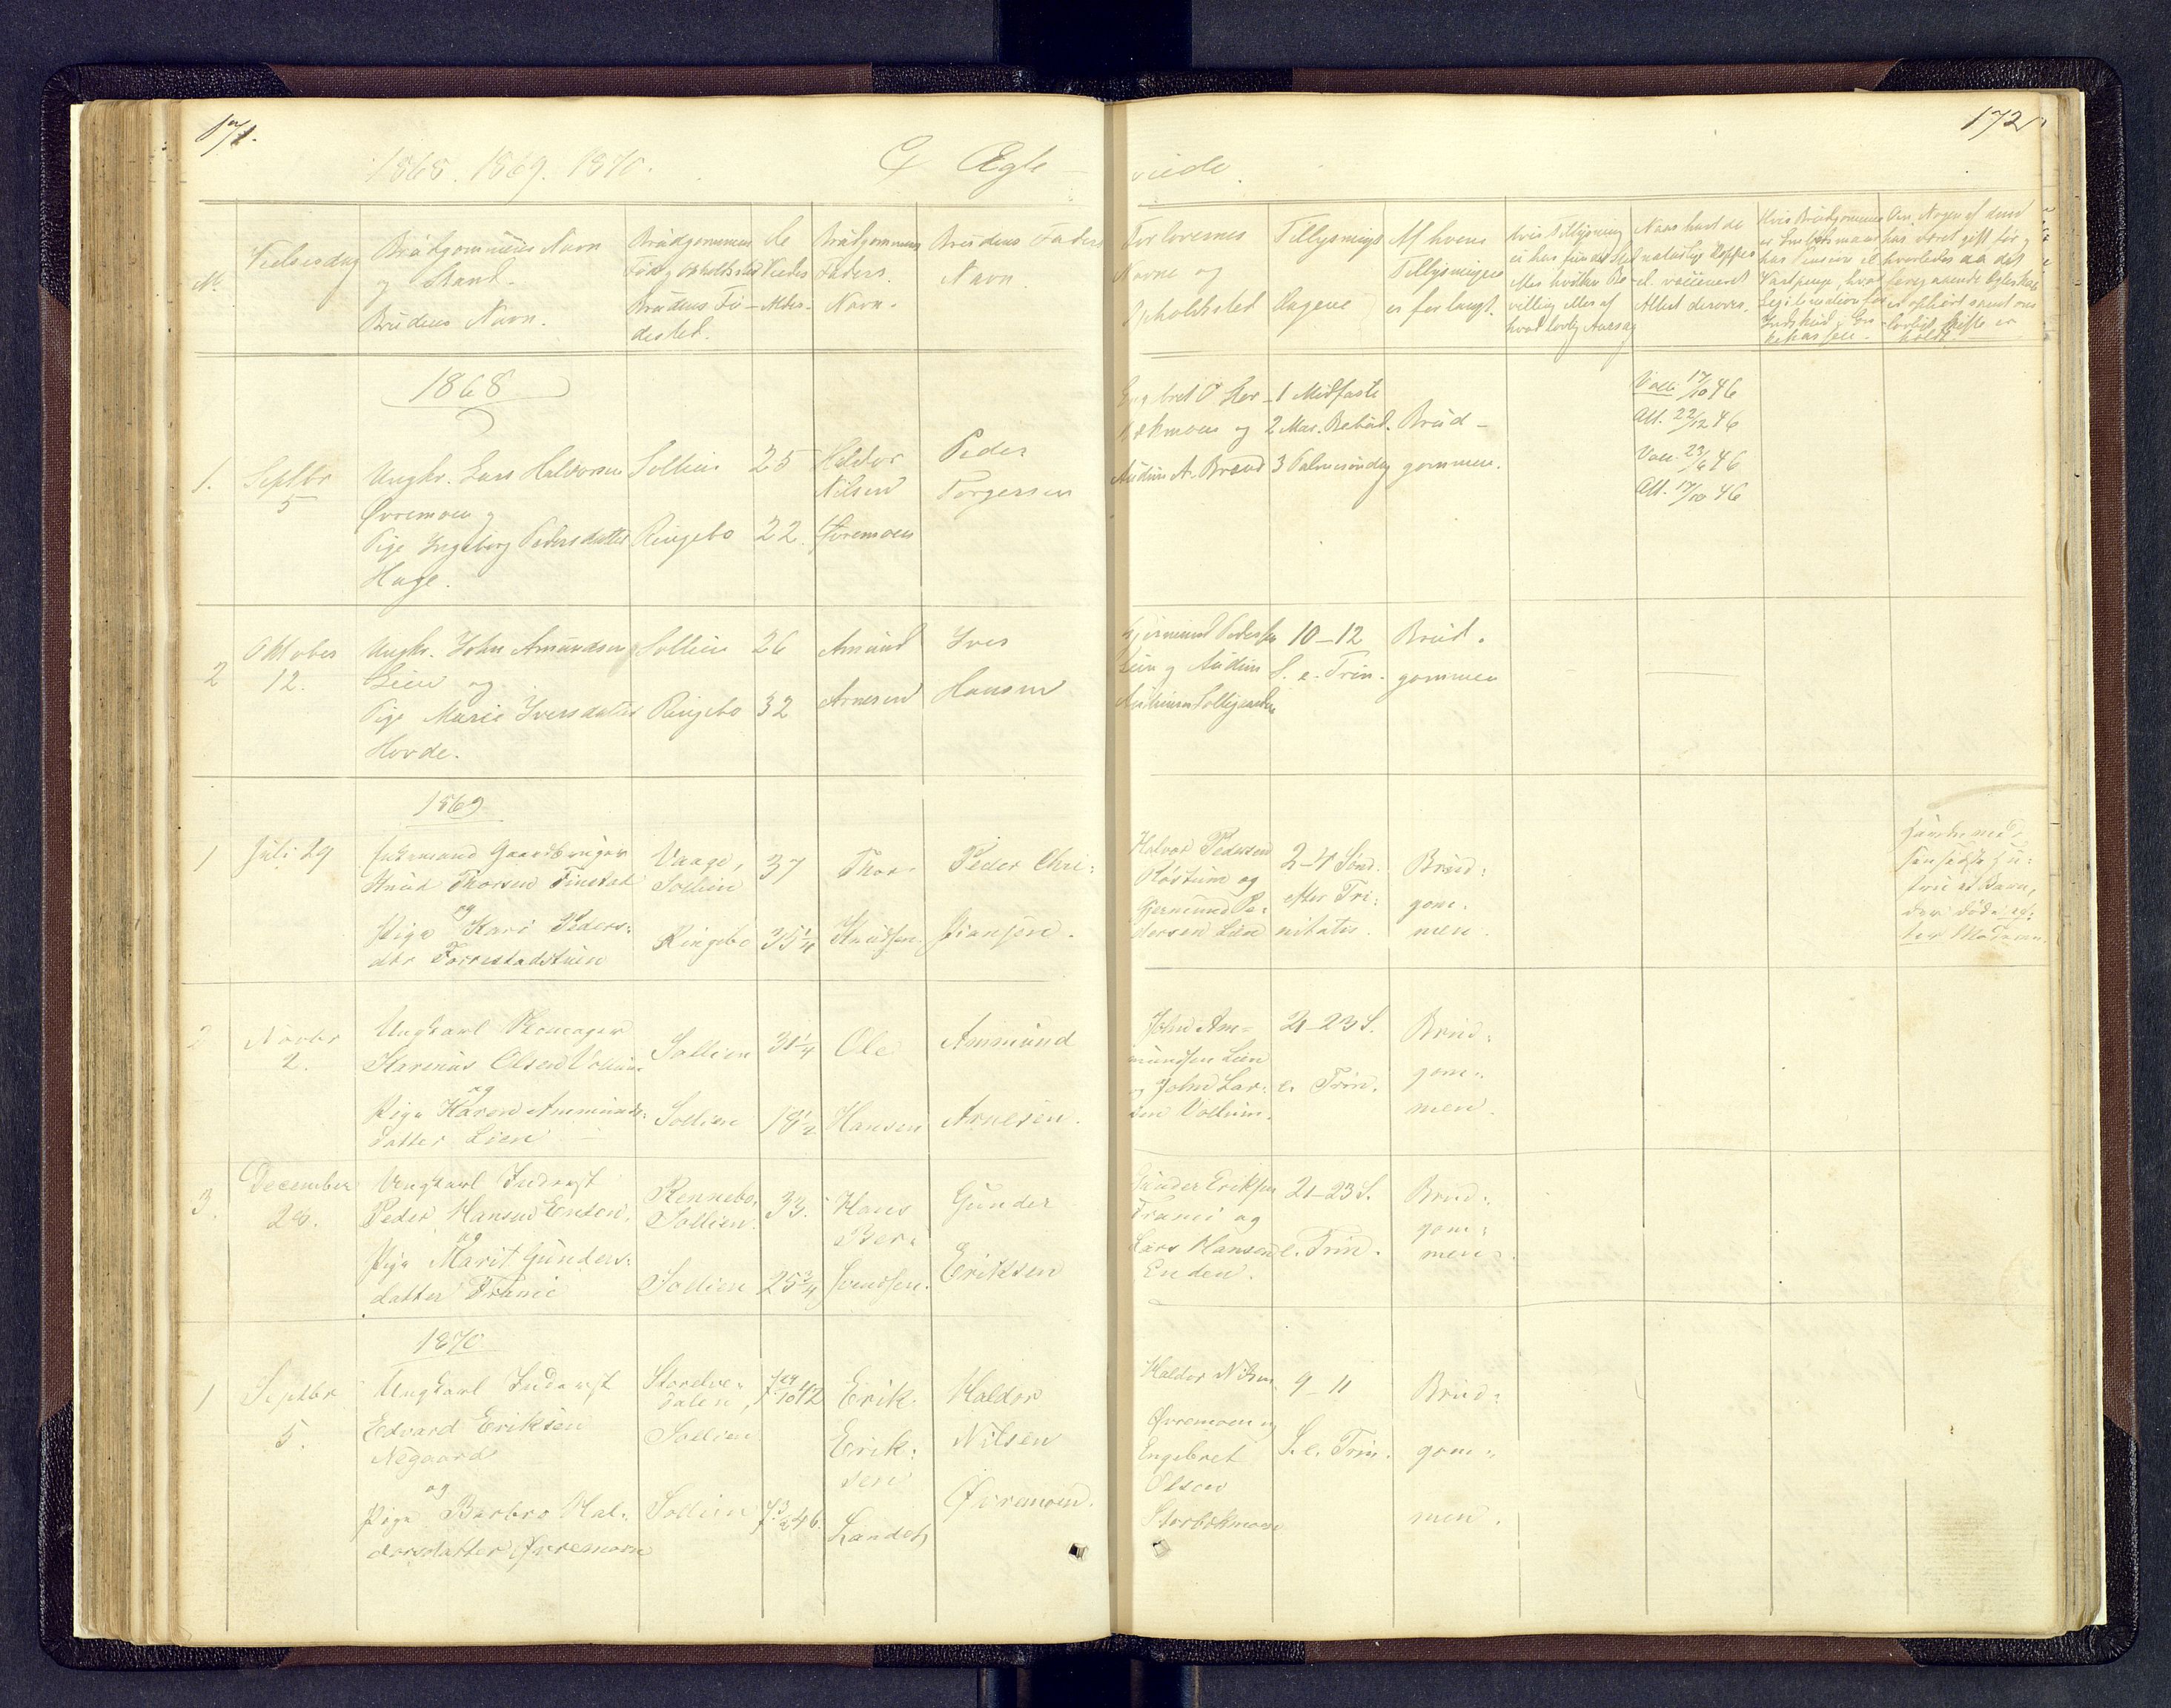 171.
172
1868. 1869. 1870.
C Ægte-
viede.
No.
Vielsesdag
Brudgommens Navn
og Stand.
Brudens Navn.
Brudgommens
Føde og Opholdssted
Brudens Fø-
dested.
De
Viedes
Alder.
Brudgommens
Faders
Navn.
Brudens Faders
Navn.
Forlovernes
Navne og
Opholdssted
Tillysnings
Dagene
Af hvem
Tillysningen
er forlangt.
Hvis Tillysning
ei har fundet Sted
efter hvilken Be-
villing eller af
hvad lovlig Aarsag
Naar havt de
naturlige Kopper
el. vaccineret
Attest derover.
Hvis Brudgommen
er
har
hvad
Legitimation for
Indskud i En-
kekassen.
Om Nogen af dem
har været gift før og
hvorledes da det
foregaaende Ægteskab
er ophørt samt om
lovligt Skifte er
holdt.
1868
1.
Septbr
5
Ungkr. Lars Haldorsen
Øvremoen og
Pige Ingeborg Pedersdatter
Hage.
Sollien
Ringebo
25
22.
Haldor
Nilsen
Øvremoen
Peder
Torgersen
Engbret O Stor-
bækmoen og
Audun A. Brænd
1 Midfaste
2 Mar. Bebud.
3 Palmesøndag
Brud-
gommen.
Vacc. 17/10 46
Att. 22/12 46
Vacc. 23/6 46
Att. 17/10 46
2
Oktober
12.
Ungkr. John Amundsen
Lien og
Pige Marie Iversdatter
Hovde.
Sollien
Ringebo
26
32
Amund
Arnesen
Iver
Hansen
Gjermund Pedersen
Lien og Audun
Sollijaardene
10-12
S. e. Trin.
Brud-
gommen
1869
1
Juli 29
Enkemand Gaardbruger
Knud Thorsen Finstad
og
Pige Kari Peders-
dtr Forrestadstuen
Vaage,
Sollien
Ringebo
37
35 1/4
Thor
Knudsen
Peder Chri-
stiansen.
Halvor Pedersen
og
Gjermund Pe-
dersen Lien
2-4 Sønd.
efter Tri-
nitatis.
Brud-
gom-
men.
Havde med
sin sidste Hu-
stru et Barn,
der døde ef-
ter Moderen.
2
Novbr
2.
Ungkarl
Karenus Olsen Vollum
og
Pige Karen Ammunds-
datter Lien
Sollien
Sollien
31 1/4
19 1/2
Ole
Hansen
Ammund
Arnesen.
John Am-
mundsen Lien
og John Lar-
sen Vollum.
21-23 S.
e. Trin.
Brud-
gom-
men.
3.
December
28.
Ungkarl Inderst
Peder Hansen Enden,
og
Pige Marit Gunders-
datter Trønes
Rennebo,
Sollien.
Sollien
33.
25 3/4
Hans
Ber-
Svendsen.
Gunder
Eriksen
Gunder Eriksen
og
Lars Hansen
Enden.
21-23 S.
e. Trin.
Brud-
gom-
men.
1870
1
Septbr
5.
Ungkarl Inderst
Edvard Eriksen
Negaard
og
Pige Barbro Hal-
dorsdatter Øvremoen
Storelve-
dalen,
Sollien
Sollien
Erik
Erik-
sen
Haldor
Nilsen
Øvremoen.
Haldor Nilsen
Øvremoen og
Engebret
Olsen
Storbækmoen
9-11
S. e. Trin.
Brud-
gom-
men.